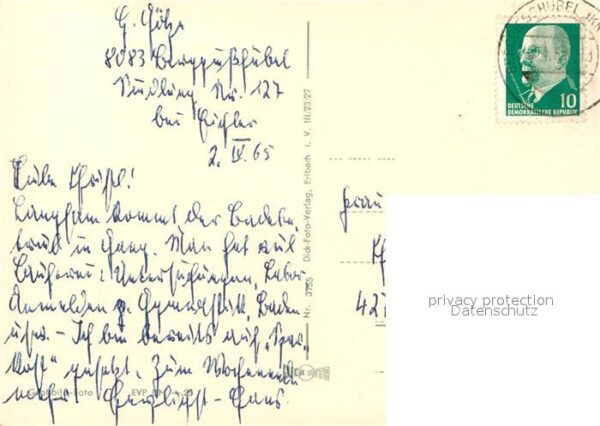 G. Götze
8083 Berggießhübel
Siedlung Nr. 127
bei Eichler
2. IV. 65
Liebe Christl!
Langsam kommt der Badebe-
trieb in Gang. Man hat viel
Lauferei: Untersuchungen, Labor,
Anmelden z. Gymnastik, Baden
usw. - Ich bin bereits auf
Kost" gesetzt. Zum Wochenende
mehr! Herzlichst - Hans.
Foto EVP
Nr. 3755 Dick-Foto-Verlag, Erlbach i. V. III/23/27
10
DEUTSCHE
DEMOKRATISCHE REPUBLIK
Frau
427
privacy protection
Datenschutz